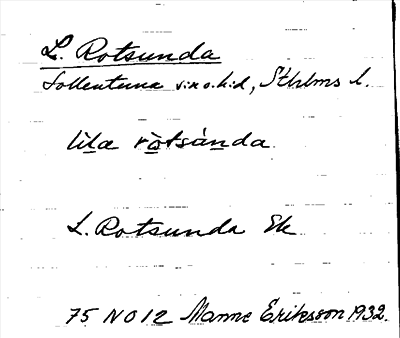 L. Rotsunda
Sollentuna sn o. hd, Sthlms l.
lìl̲a rò̲tsán̲da
L. Rotsunda Ek
75 NO 12 Manne Eriksson 1932.